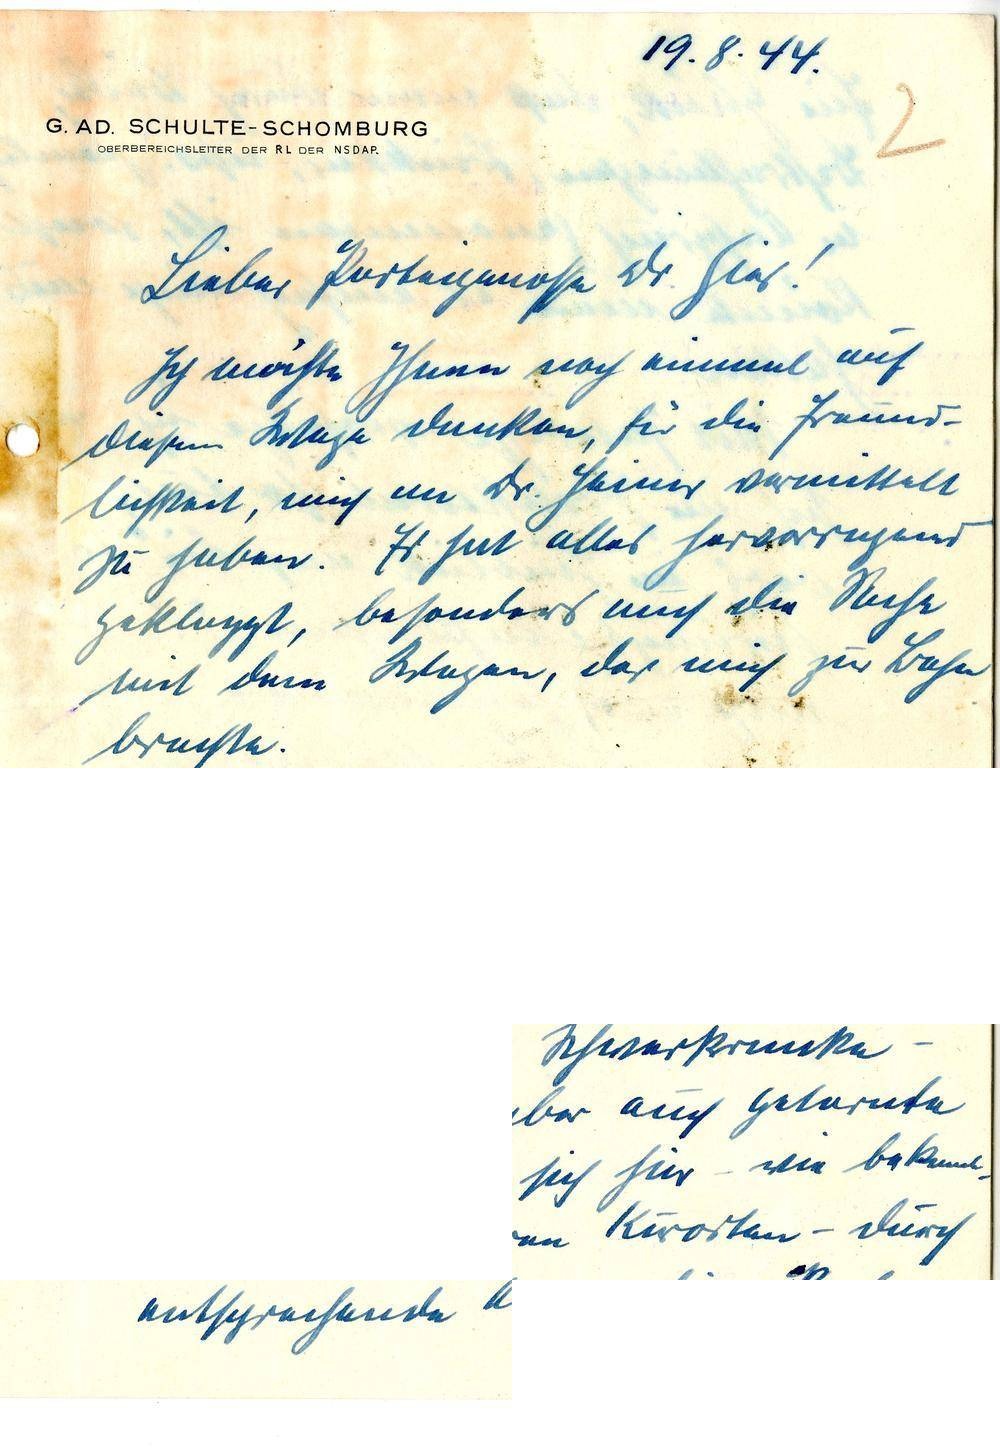 19. 8. 44.
2
G. AD. SCHULTE-SCHOMBURG
OBERBEREICHSLEITER DER RL DER NSDAP.
Lieber Parteigenosse Dr. Gies!
Ich möchte Ihnen noch einmal auf
diesem Wege danken, für die Freund-
lichkeit, mich an Dr. Heines vermittelt
zu haben. Es hat alles hervorragend
geklappt, besonders auch die Sache
mit dem Wagen, der mich zur Bahn
brachte.
Schwerkranke –
aber auch getarnte
sich hier – wie bekannt-
Kurorten – durch
entsprechende